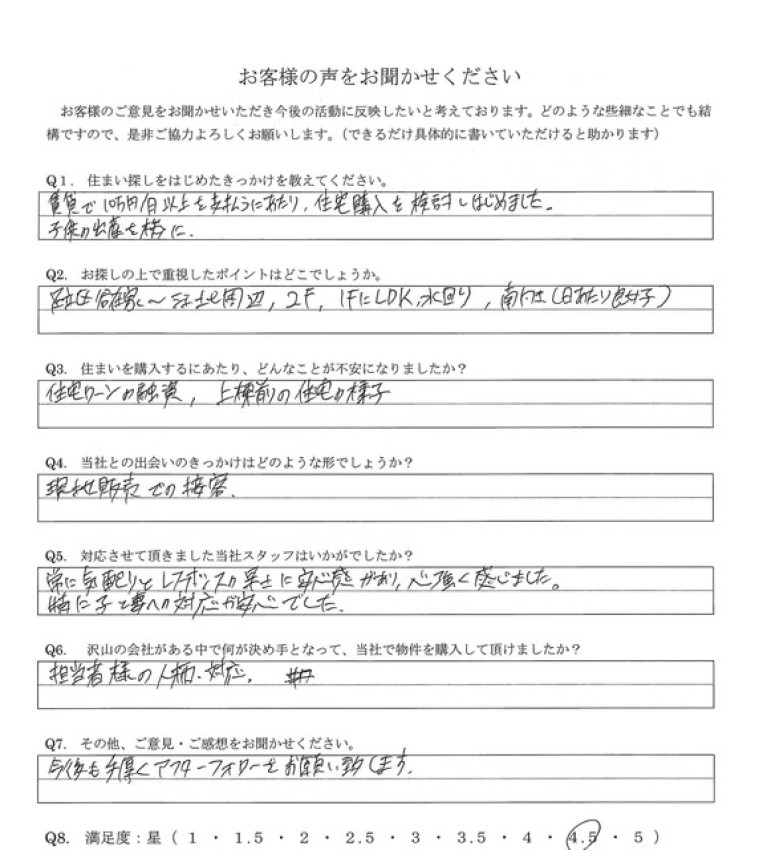 お客様の声をお聞かせください
お客様のご意見をお聞かせいただき今後の活動に反映したいと考えております。どのような些細なことでも結
構ですので、是非ご協力よろしくお願いします。(できるだけ具体的に書いていただけると助かります)
Q1. 住まい探しをはじめたきっかけを教えてください。
賃貸で10万円/月以上を支払うにあたり、住宅購入を検討しはじめました。
子供の出産を機に.
Q2. お探しの上で重視したポイントはどこでしょうか。
周辺, 2F, 1FにLDK,水回り, 南向き(日あたり良好)
Q3. 住まいを購入するにあたり、どんなことが不安になりましたか?
住宅ローンの融資, 上棟前の住宅の様子
Q4. 当社との出会いのきっかけはどのような形でしょうか?
現地販売での接客.
Q5. 対応させて頂きました当社スタッフはいかがでしたか?
常に気配りとレスポンスの早さに安心感があり、心強く感じました。
特に子供への対応が安心でした.
Q6. 沢山の会社がある中で何が決め手となって、当社で物件を購入して頂けましたか?
担当者様の人柄.対応.
Q7. その他、ご意見・ご感想をお聞かせください。
今後も手厚くアフターフォローをお願い致します.
Q8. 満足度:星(1 ・ 1.5 ・ 2 ・ 2.5 ・ 3 ・ 3.5 ・ 4 ・ 4.5 ・ 5)